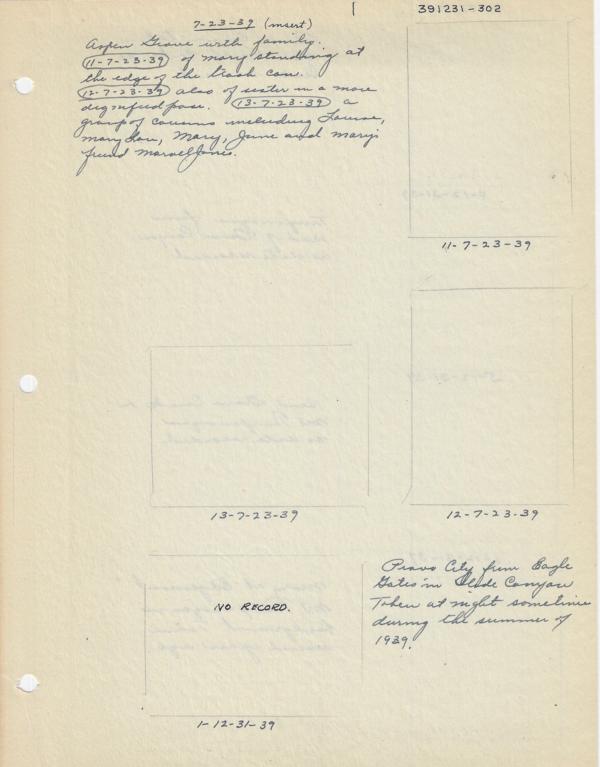 391231-302
7-23-39 (insert)
Aspen Grove with family.
11-7-23-39 of Mary standing at
the edge of the trash can.
12-7-23-39 also of sister in a more
dignified pose. 13-7-23-39 a
group of cousins including Louise,
Mary Lou, Mary, June and Mary's
friend Marvel Jones.
11-7-23-39
13-7-23-39
12-7-23-39
Provo City from Eagle
Gates in Slide Canyon
Taken at night sometime
during the summer of
1939.
NO RECORD.
1-12-31-39